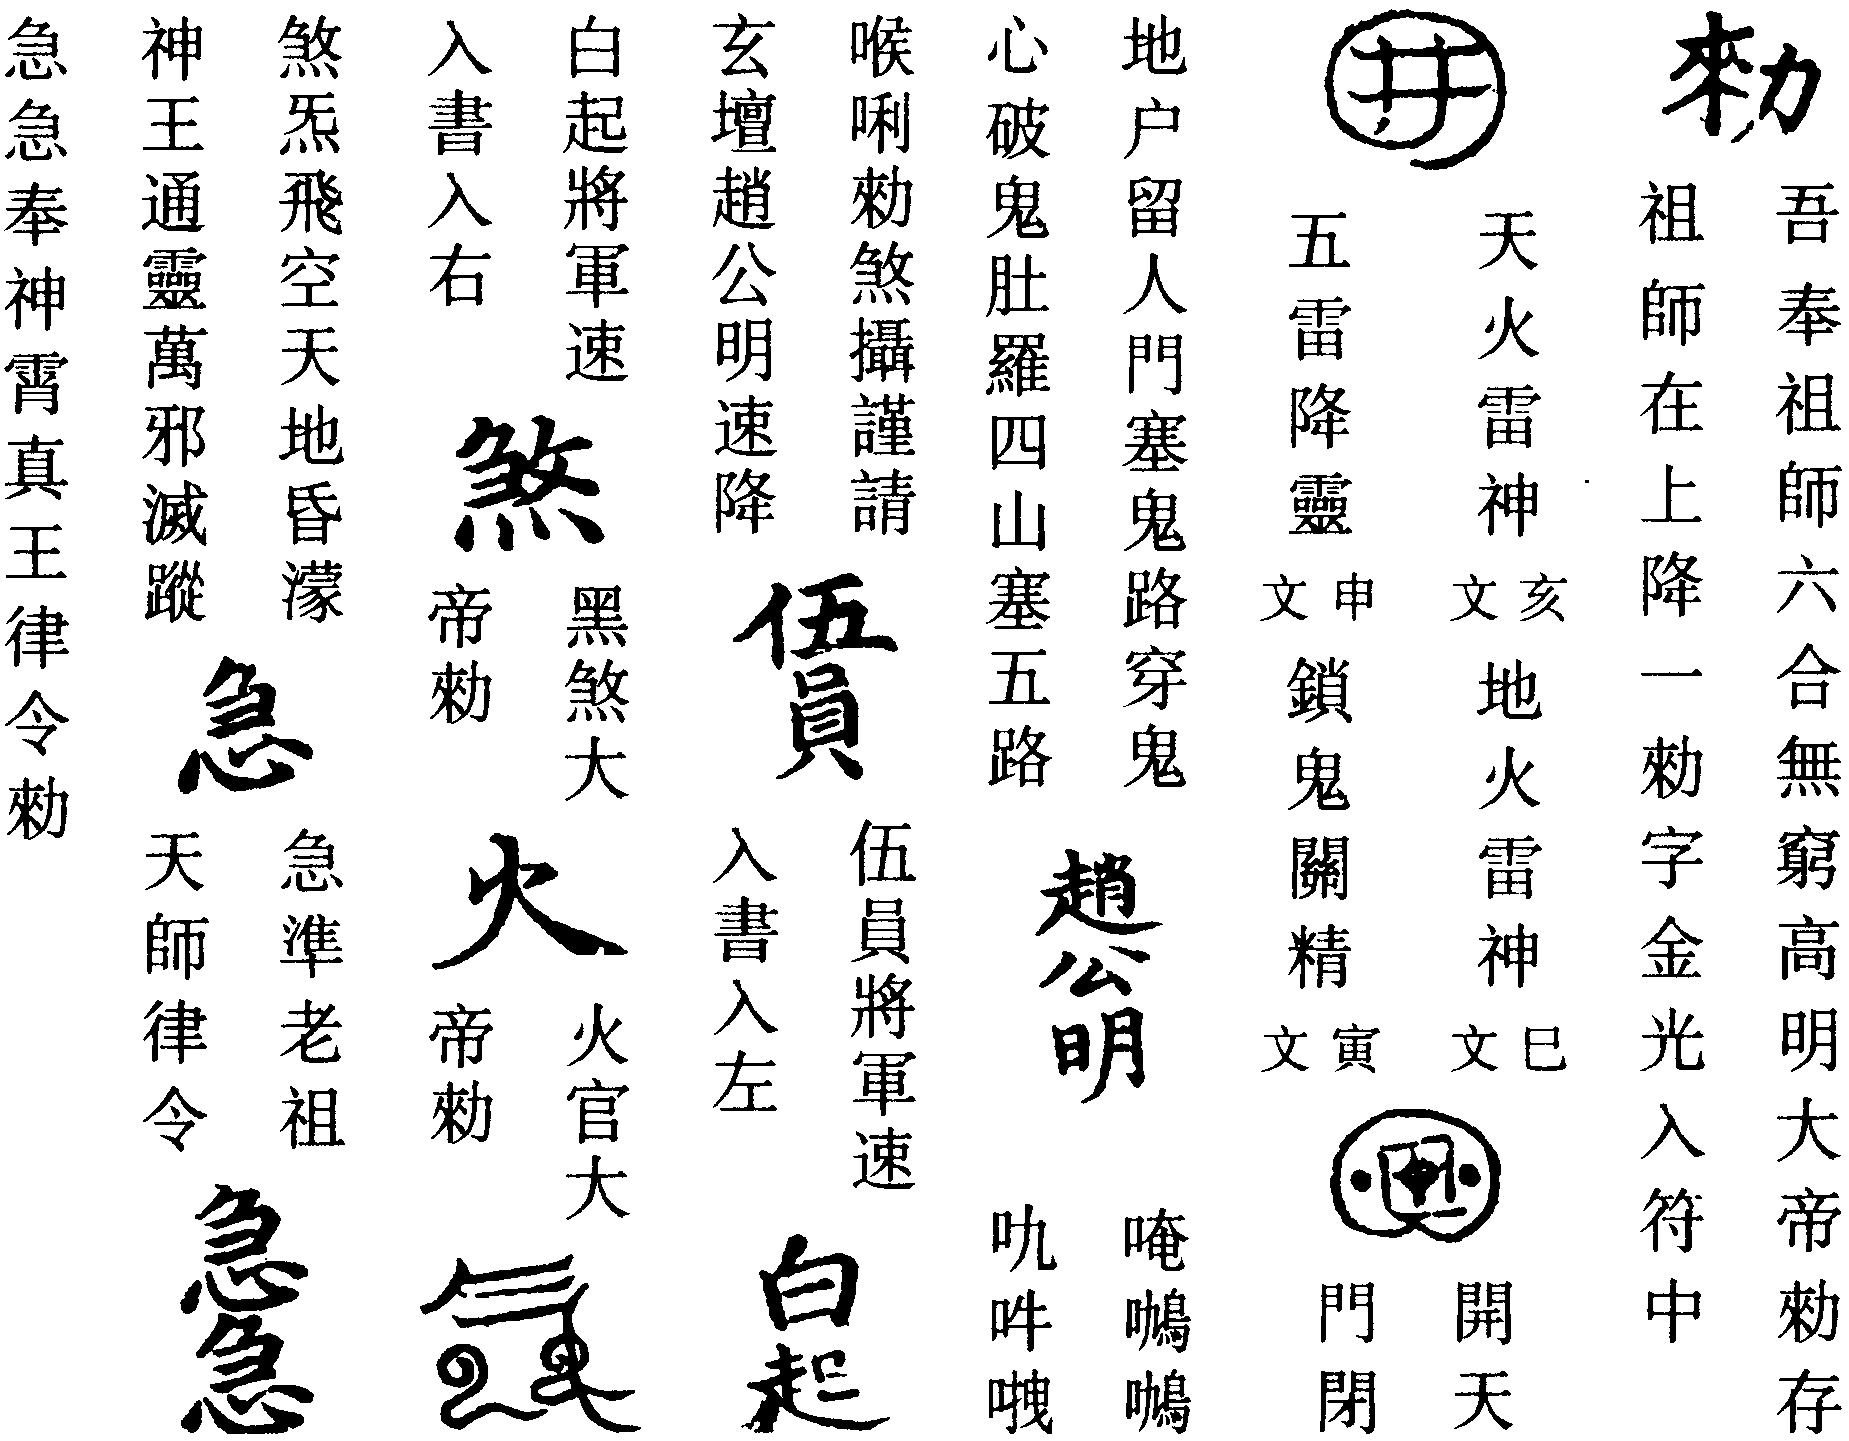 勑
吾奉祖師六合無窮高明大帝勑存
祖師在上降一勑字金光入符中
井
天火雷神
五雷降靈
亥文
申文
地火雷神
鎖鬼關精
巳文
寅文
開天
門閉
地户留人門塞鬼路穿鬼
心破鬼肚羅四山塞五路
趙公明
唵
吽
喉唎勑煞攝謹請
玄壇趙公明速降
伍員
伍員將軍速
入書入左
白起
白起將軍速
入書入右
煞
黑煞大
帝勑
火
火官大
帝勑
煞炁飛空天地昏濛
神王通靈萬邪滅蹤
急
急準老祖
天師律令
急急
急急奉神霄真王律令勑